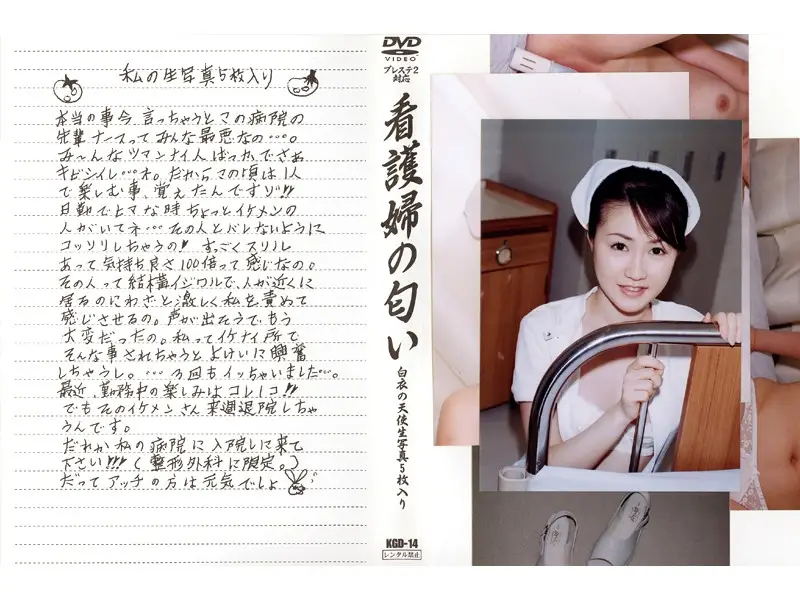 私の生写真5枚入り
本当の事今、言っちゃうとこの病院の
先輩ナースってみんな最悪なの…。
み〜んなツマンナイ人ばっかでさぁ
キビシイし…ネ。だからこの頃は1人
で楽しむ事、覚えたんですゾ!!
日勤でヒマな時ちょっとイケメンの
人がいてネ…その人とバレないように
コッソリしちゃうの!すっごくスリル
あって気持ち良さ100倍って感じなの。
その人って結構イジワルで、人が近くに
居るのにわざと激しく私を責めて
感じさせるの。声が出そうでもう
大変だったの。私ってイケナイ所で
そんな事されちゃうとよけいに興奮
しちゃうし。…3回もイッちゃいました…。
最近、勤務中の楽しみはコレ1コ!!
でもそのイケメンさん来週退院しちゃ
うんです。
だれか私の病院に入院しに来て
下さい!!!(整形外科に限定。)
だってアッチの方は元気でしょ
DVD
VIDEO
プレステ2
対応
看護婦の匂い
白衣の天使生写真5枚入り
KGD-14
レンタル禁止